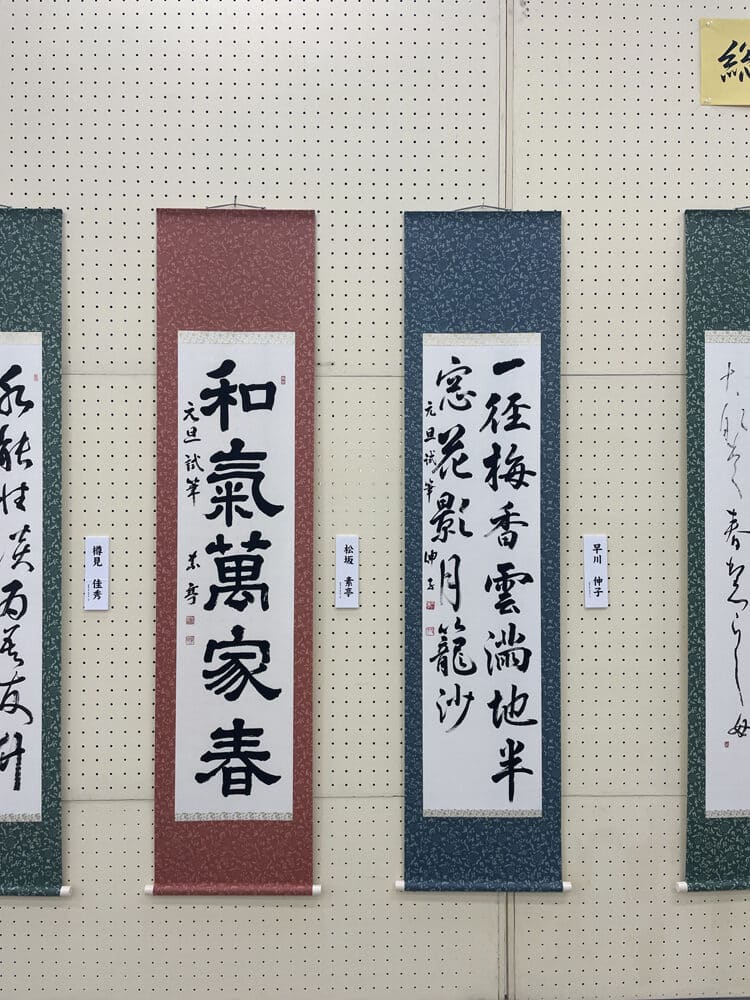 総
一径梅香雲満地半
窓花影月籠沙
元旦試筆 伸子
早川 伸子
和氣萬家春
元旦試筆 素亭
松坂 素亭
水能性淡為吾友竹
樽見 佳秀